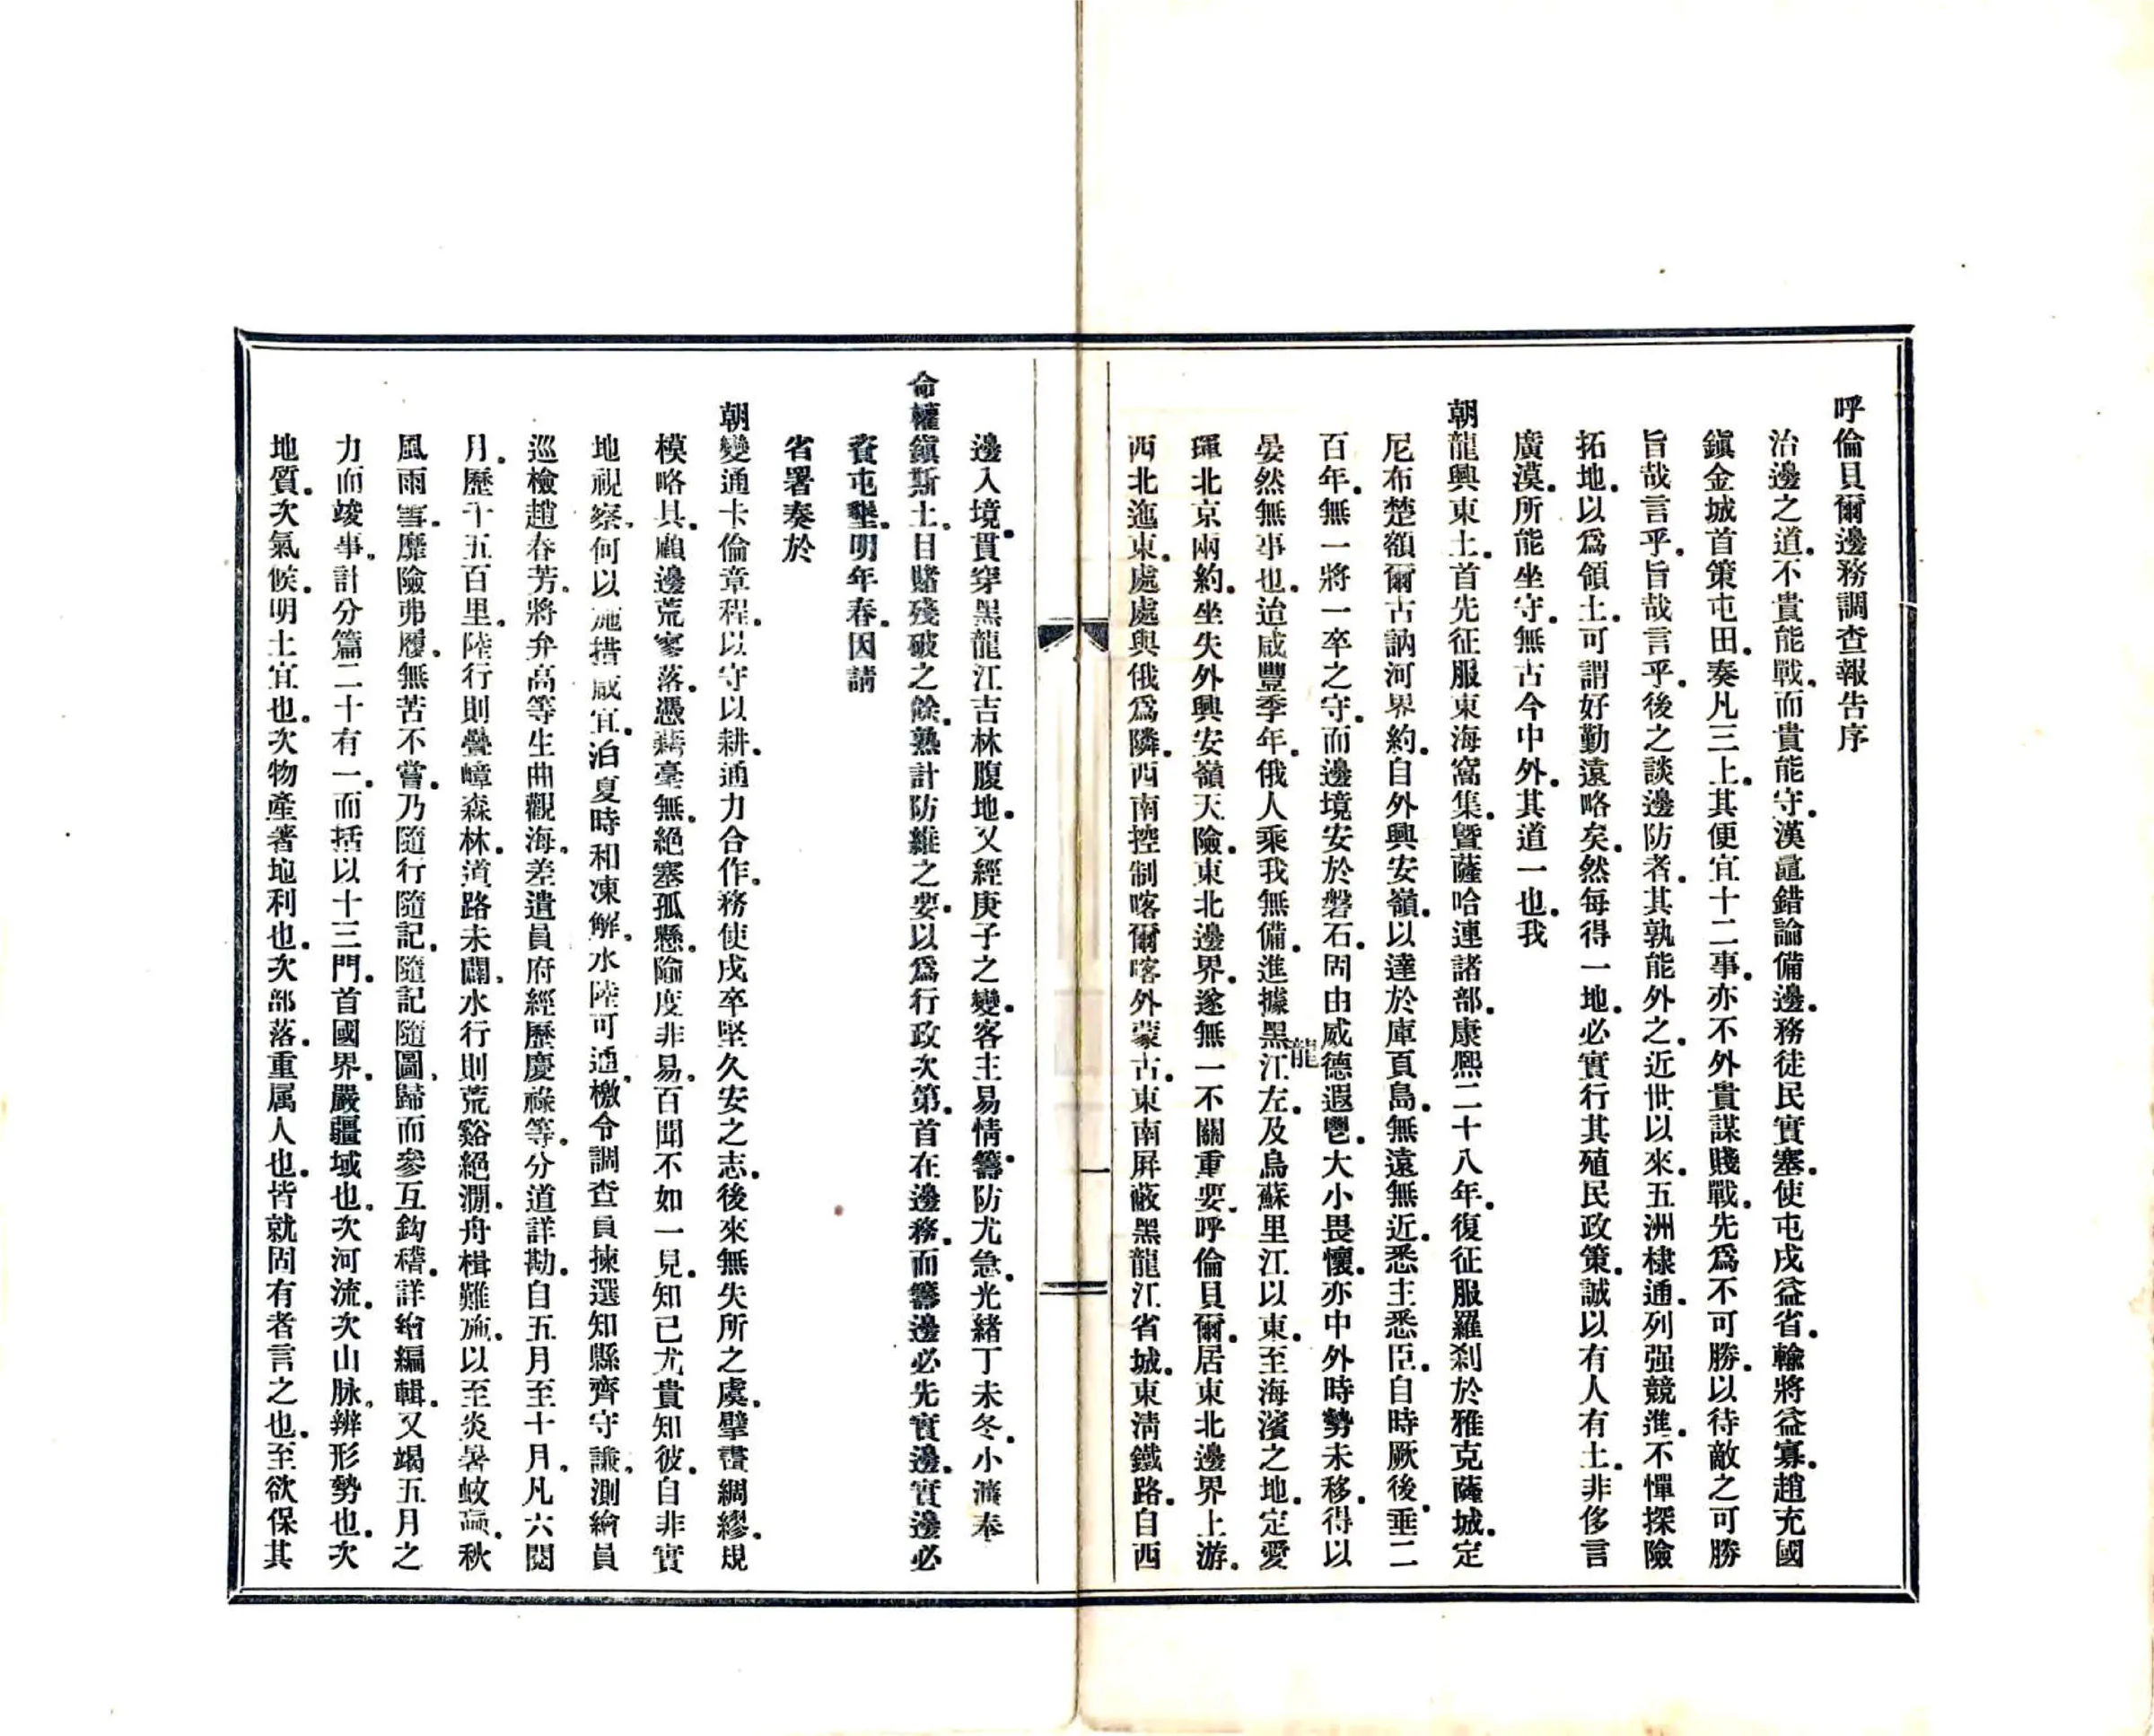 呼倫貝爾邊務調查報告序
治邊之道。不貴能戰。而貴能守。漢鼂錯論備邊。務徒民實塞。使屯戍益省。輸將益寡。趙充國
鎭金城首策屯田。奏凡三上。其便宜十二事。亦不外貴謀賤戰。先爲不可勝。以待敵之可勝
旨哉言乎。旨哉言乎。後之談邊防者。其孰能外之。近世以來。五洲棣通。列强競進。不憚探險
拓地。以爲領土。可謂好勤遠略矣。然每得一地。必實行其殖民政策。誠以有人有土。非侈言
廣漠。所能坐守。無古今中外。其道一也。我
朝龍興東土。首先征服東海窩集。曁薩哈連諸部。康熙二十八年。復征服羅刹於雅克薩城。定
尼布楚額爾古訥河界約。自外興安嶺。以達於庫頁島。無遠無近。悉主悉臣。自時厥後。垂二
百年。無一將一卒之守。而邊境安於磐石。固由威德遐鬯。大小畏懷。亦中外時勢未移。得以
晏然無事也。迨咸豐季年。俄人乘我無備。進據黑龍江左。及烏蘇里江以東。至海濱之地。定愛
琿北京兩約。坐失外興安嶺天險。東北邊界。遂無一不關重要。呼倫貝爾。居東北邊界上游。
西北迤東。處處與俄爲隣。西南控制喀爾喀外蒙古。東南屛蔽黑龍江省城。東淸鐵路。自西
邊入境。貫穿黑龍江吉林腹地。又經庚子之變。客主易情。籌防尤急。光緒丁未冬。小濂奉
命權鎭斯土。目賭殘破之餘。熟計防維之要。以爲行政次第。首在邊務。而籌邊必先實邊。實邊必
資屯墾。明年春。因請
省署奏於
朝變通卡倫章程。以守以耕。通力合作。務使戍卒堅久安之志。後來無失所之虞。擘畫綢繆。規
模略具。顧邊荒寥落。憑藉毫無。絕塞孤懸。隃度非易。百聞不如一見。知已尤貴知彼。自非實
地視察。何以施措咸宜。洎夏時和凍解。水陸可通。檄令調查員揀選知縣齊守謙。測繪員
巡檢趙春芳。將弁高等生曲觀海。差遣員府經歷慶祿等。分道詳勘。自五月至十月。凡六閱
月。歷千五百里。陸行則疊嶂森林。道路未闢。水行則荒谿絕淵。舟楫難施。以至炎暑蚊蝱。秋
風雨雪。靡險弗履。無苦不嘗。乃隨行隨記。隨記隨圖。歸而參互鈎稽。詳繪編輯。又竭五月之
力而竣事。計分篇二十有一。而括以十三門。首國界。嚴疆域也。次河流。次山脉。辨形勢也。次
地質。次氣候。明土宜也。次物產著地利也。次部落。重属人也。皆就固有者言之也。至欲保其
一